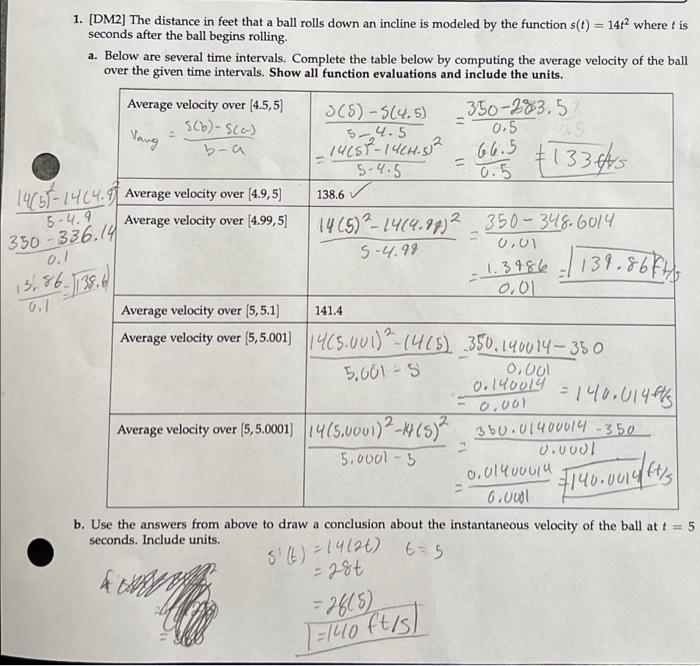 1. [DM2] The distance in feet that a ball rolls down an incline is modeled by the function s(t) = 14t² where t is
seconds after the ball begins rolling.
a. Below are several time intervals. Complete the table below by computing the average velocity of the ball
over the given time intervals. Show all function evaluations and include the units.
Average velocity over [4.5, 5]
Vavg = S(b)-S(a) / b-a
S(5)-S(4.5) / 5-4.5 = 350-283.5 / 0.5
= 14(5)²-14(4.5)² / 5-4.5 = 66.5 / 0.5 = 133 ft/s
14(5)²-14(4.9)² / 5-4.9
350-336.14 / 0.1
13.86 / 0.1 = 138.6
Average velocity over [4.9, 5]
138.6 ✓
Average velocity over [4.99, 5]
14(5)²-14(4.99)² / 5-4.99 = 350-348.6014 / 0.01
= 1.3986 / 0.01 = 139.86 ft/s
Average velocity over [5, 5.1]
141.4
Average velocity over [5, 5.001]
14(5.001)²-14(5) / 5.001-5 = 350.140014-350 / 0.001
= 0.140014 / 0.001 = 140.014 ft/s
Average velocity over [5, 5.0001]
14(5.0001)²-14(5)² / 5.0001-5 = 350.01400014-350 / 0.0001
= 0.01400014 / 0.0001 = 140.0014 ft/s
b. Use the answers from above to draw a conclusion about the instantaneous velocity of the ball at t = 5
seconds. Include units.
s'(t) = 14(2t) t=5
= 28t
= 28(5)
= 140 ft/s